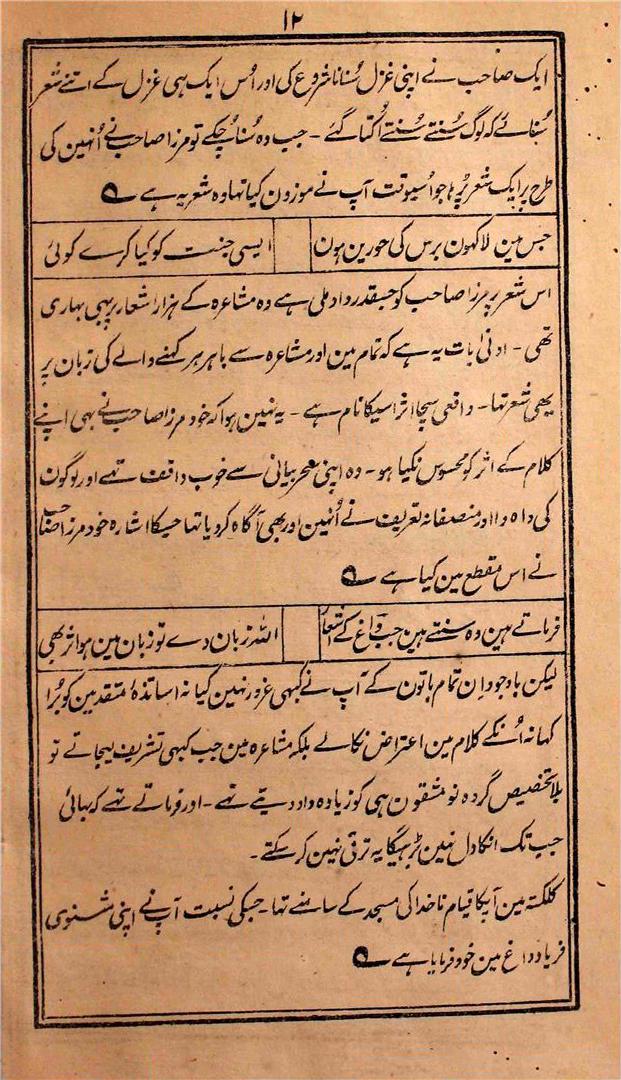 ۱۲
ایک صاحب نے اپنی غزل سُنانا شروع کی اور اُس ایک ہی غزل کے اتنے شعر
سُنائے کہ لوگ سُنتے سُنتے اُکتا گئے - جب وہ سُنا چکے تو مرزا صاحب نے اُنہین کی
طرح پر ایک شعر پڑہا جو اُسیوقت آپ نے موزون کیا تہا وہ شعر یہ ہے ؎
جس مین لاکہون برس کی حورین ہون ایسی جنت کو کیا کرے کوئی
اس شعر پر مرزا صاحب کو جسقدر داد ملی ہے وہ مشاعرہ کے ہزار اشعار پر بہی بہاری
تہی - ادنیٰ بات یہ ہے کہ تمام مین اور مشاعرہ سے باہر ہر کہنے والے کی زبان پر
یہی شعر تہا - واقعی سچا اثر اسیکا نام ہے - یہ نہین ہوا کہ خود مرزا صاحب نے بہی اپنے
کلام کے اثر کو محسوس نکیا ہو - وہ اپنی سحر بیانی سے خوب واقف تہے اور لوگون
کی واہ وا اور منصفانہ تعریف نے اُنہین اور بھی آگاہ کردیا تہا جسکا اشارہ خود مرزا صاحب
نے اس مقطع مین کیا ہے ؎
فرماتے ہین وہ سنتے ہین جب داغ کے اشعار اللہ زبان دے تو زبان مین ہو اثر بھی
لیکن باوجود اِن تمام باتون کے آپ نے کبہی غرور نہین کیا نہ اساتذۂ متقدمین کو بُرا
کہا نہ اُنکے کلام مین اعتراض نکالے بلکہ مشاعرہ مین جب کبہی تشریف لیجاتے تو
بلا تخصیص گروہ نو مشقون ہی کو زیادہ داد دیتے تہے - اور فرماتے تہے کہ بہائی
جب تک انکا دل نہین بڑہیگا یہ ترقی نہین کرسکتے -
کلکتہ مین آپکا قیام ناخدا کی مسجد کے سامنے تہا - جسکی نسبت آپ نے اپنی مثنوی
فریاد داغ مین خود فرمایا ہے ؎